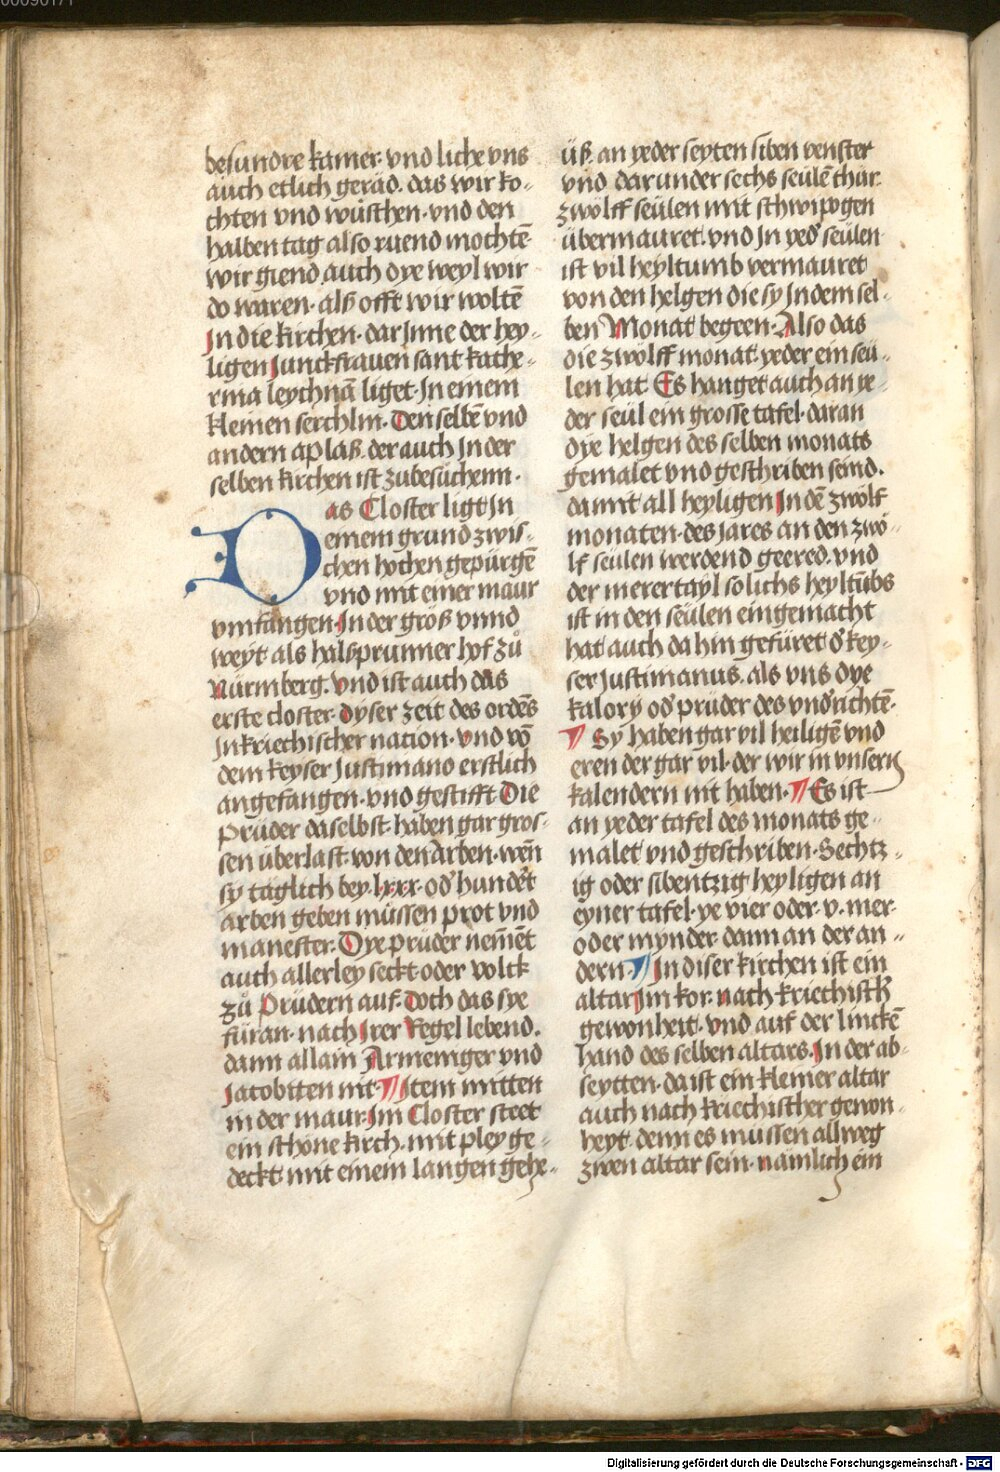 besundre kamer· vnd liche vns
auch etlich geräd· das wir ko-
chten vnd wüschen· vnd den
halben tag also ruend mochtē
wir giend auch dye weyl wir
do waren· alß offt wir woltē
Jn die kirchen· dar Jnne der hey-
ligen Junckfrauen sant kathe-
rina leychnā liget· Jn einem
kleinen serchlin· Den selbē vnd
andern aplaß· der auch Jn der
selben kirchen ist zubesüchenn·
Das Closter ligt Jn
einem grund zwis-
chen hochen gepürgē
vnd mit einer maur
vmfangen· Jn der größ vnnd
weyt als halßprunner hof zů
Nürmberg· vnd ist auch das
erste closter· dyser zeit des ordēs
Jn kriechischer nacion· vnd vō
dem keyser Justiniano erstlich
angefangen· vnd gestifft Die
Prüder daselbst· haben gar gros-
sen überlast· von den Arben· wēn
sy täglich bey· lxxx· od̄ hundēt
arben geben müssen prot vnd
manester· Dye prüder nemēt
auch allerley seckt· oder volck
zů Prüdern auf· Doch das sye
füran· nach Jrer Regel lebend·
dann allain Armeniger vnd
Jacobitten nit· ¶ Jtem mitten
in der maur· Jm Closter steet
ein schöne kirch· mit pley ge-
deckt· mit einem langen gehe-
üß· an yeder seyten siben venster
vnd dar under sechs seülē thür·
zwölff seülen mit schwipogen
übermauret· vnd Jn yed̄ seülen
ist vil heyltumb vermauret
von den helgen die sy Jn dem sel-
ben Monat begeen· Also das
die zwölff monat· yeder ein seü-
len hat· Es hanget auch an ye-
der seul ein grosse tafel· daran
dye helgen des selben monats
gemalet vnd geschriben seind·
damit all heyligen Jn dē zwölf
monaten· des jares an den zwö-
lf seülen werdend geered· vnd
der merertayl solichs heyltūbs
ist in den seülen eingemacht
hat auch da hin gefüret d̄ key-
ser Justinianus· als vns dye
kalory od̄ prüder des vnd̄richtē·
¶ Sy haben gar vil heiligē vnd
eren der gar vil· der wir in vnsern
kalendern nit haben· ¶ Es ist
an yeder tafel des monats ge-
malet vnd geschriben· Sechtz-
ig oder sibentzig heyligen an
eyner tafel· ye vier oder· v· mer·
oder mynder· dann an der an-
dern· ¶ Jn diser kirchen ist ein
altar Jm kor· nach kriechisch̄
gewonheit· vnd auf der linckē
hand des selben altars· Jn der ab-
seytten· da ist ein kleiner altar
auch nach kriechischer gewon-
heyt· denn es mussen allweg
zwen altar sein· nämlich ein
Digitalisierung gefördert durch die Deutsche Forschungsgemeinschaft - DFG